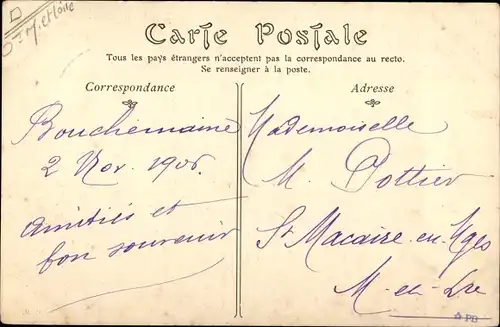 D
M. et Loire
Carte Postale
Tous les pays étrangers n'acceptent pas la correspondance au recto.
Se renseigner à la poste.
Correspondance
Adresse
Bouchemaine
2 Nov. 1906
Amitiés et
bon souvenir
Mademoiselle
M. Pottier
St Macaire-en-Mges
M-et-Lre
PB